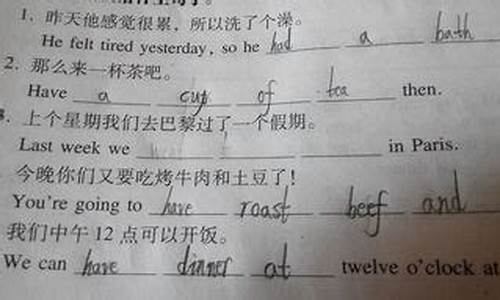 1. 昨天他感觉很累，所以洗了个澡。
He felt tired yesterday, so he had a bath
2. 那么来一杯茶吧。
Have a cup of tea then.
3. 上个星期我们去巴黎过了一个假期。
Last week we in Paris.
今晚你们又要吃烤牛肉和土豆了！
You're going to have roast beef and
我们中午 12 点可以开饭。
We can have dinner at twelve o'clock at